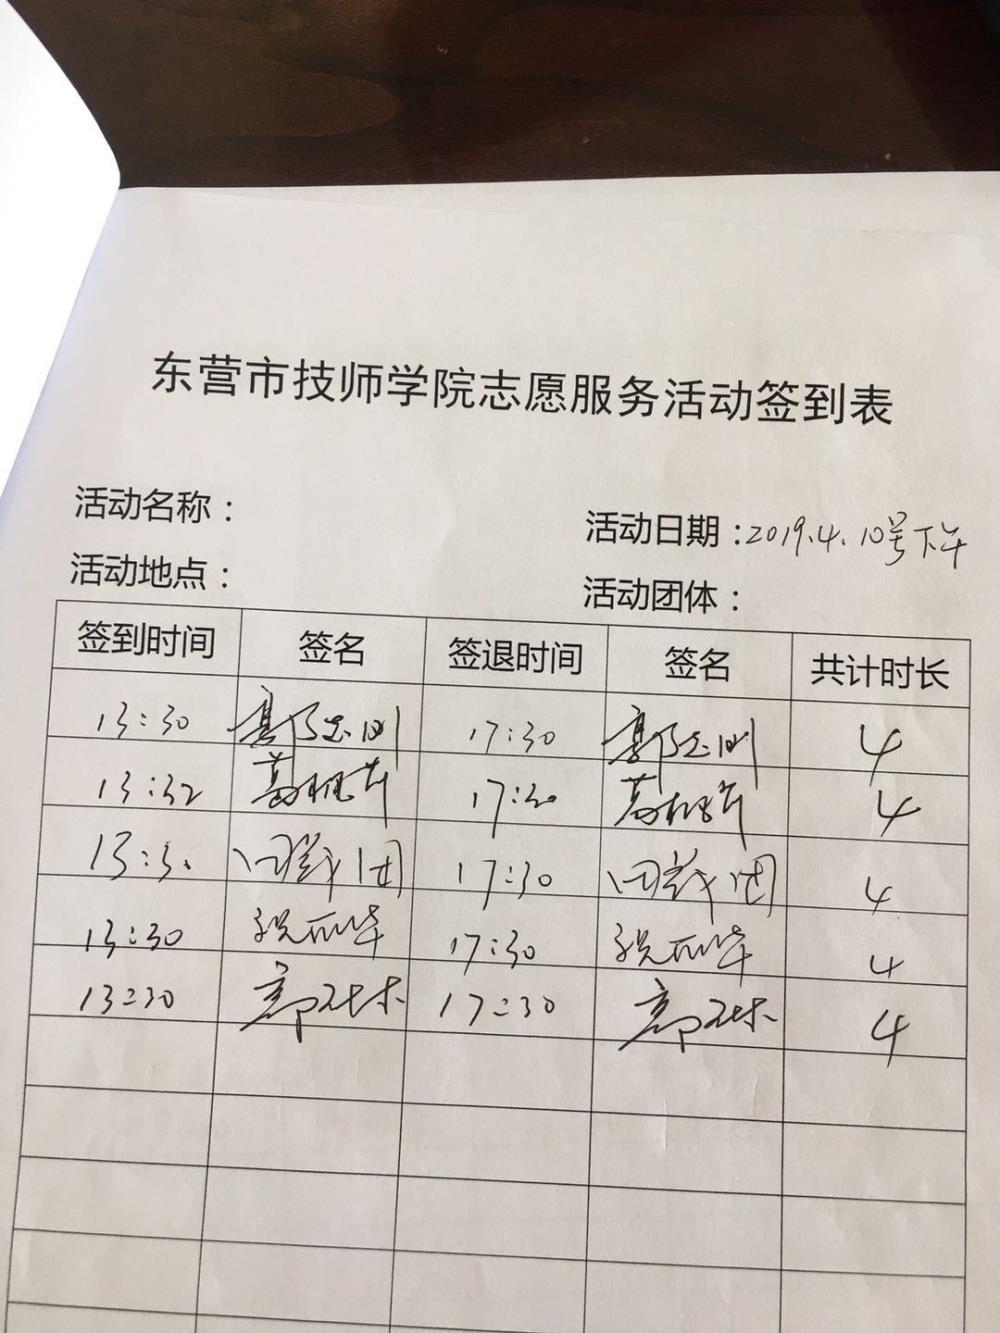 东营市技师学院志愿服务活动签到表
活动名称：
活动日期：2019.4.10号下午
活动地点：
活动团体：
签到时间 签名 签退时间 签名 共计时长
13:30 17:30 4
13:32 17:30 4
13:30 17:30 4
13:30 17:30 4
13:30 17:30 4